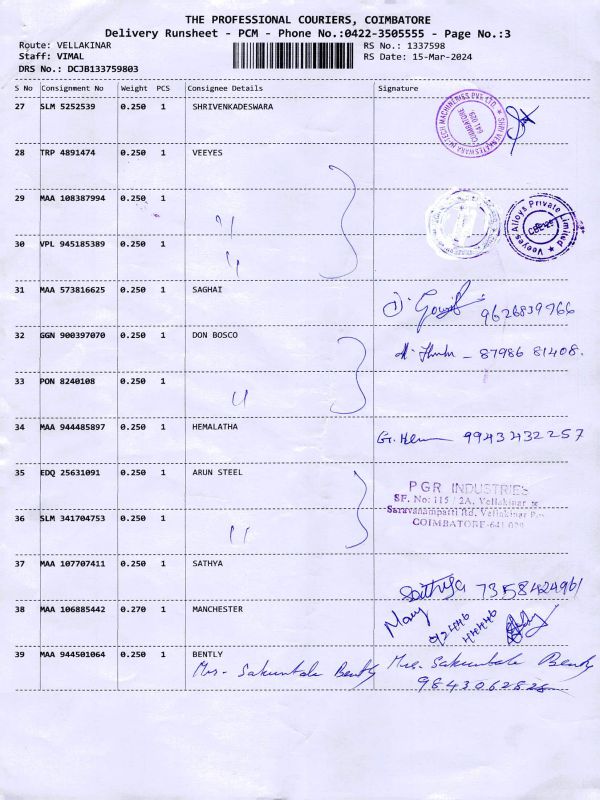 THE PROFESSIONAL COURIERS, COIMBATORE
Delivery Runsheet - PCM - Phone No.:0422-3505555 - Page No.:3
Route: VELLAKINAR RS No.: 1337598
Staff: VIMAL RS Date: 15-Mar-2024
DRS No.: DCJB133759803
S No Consignment No Weight PCS Consignee Details Signature
27 SLM 5252539 0.250 1 SHRIVENKADESWARA
28 TRP 4891474 0.250 1 VEEYES
29 MAA 108387994 0.250 1 "
Veeyes Alloys Private Limited
30 VPL 945185389 0.250 1 "
31 MAA 573816625 0.250 1 SAGHAI 9626839766
32 GGN 900397070 0.250 1 DON BOSCO - 87986 81408.
33 PON 8240108 0.250 1 "
34 MAA 944485897 0.250 1 HEMALATHA 9943432257
35 EDQ 25631091 0.250 1 ARUN STEEL
PGR INDUSTRIES
SF. No: 115 / 2A, Vellakinar
Saravanampatti Rd, Vellakinar
COIMBATORE-641 029
36 SLM 341704753 0.250 1 "
37 MAA 107707411 0.250 1 SATHYA Sathya 7358424961
38 MAA 106885442 0.270 1 MANCHESTER Mary
39 MAA 944501064 0.250 1 BENTLY
Mrs. Sakuntala Bently Mrs. Sakuntala Bently
9843062828